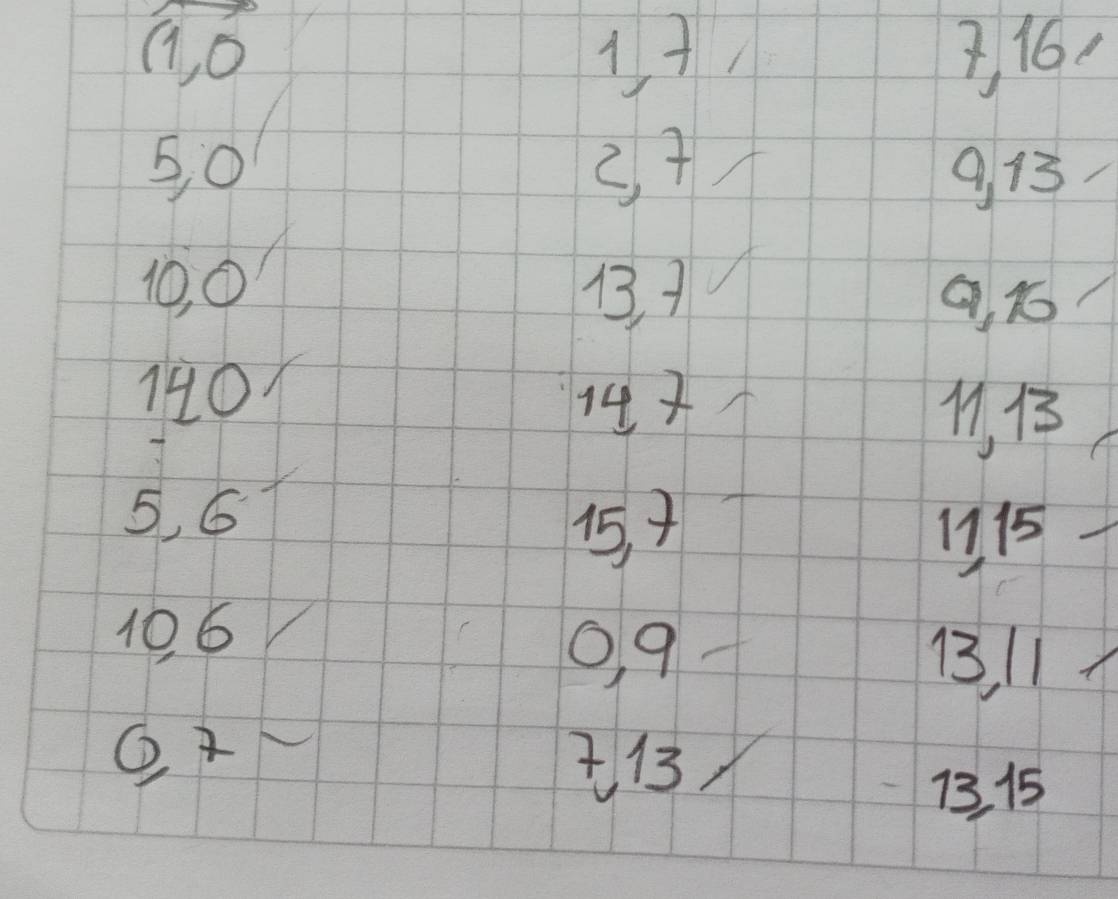 (1,0
5,0
10,0
14,0
5,6
10,6
0,7
1,7
2,7
13,7
14,7
15,7
0,9
7,13
7,16
9,13
9,16
11,13
11,15
13,11
13,15